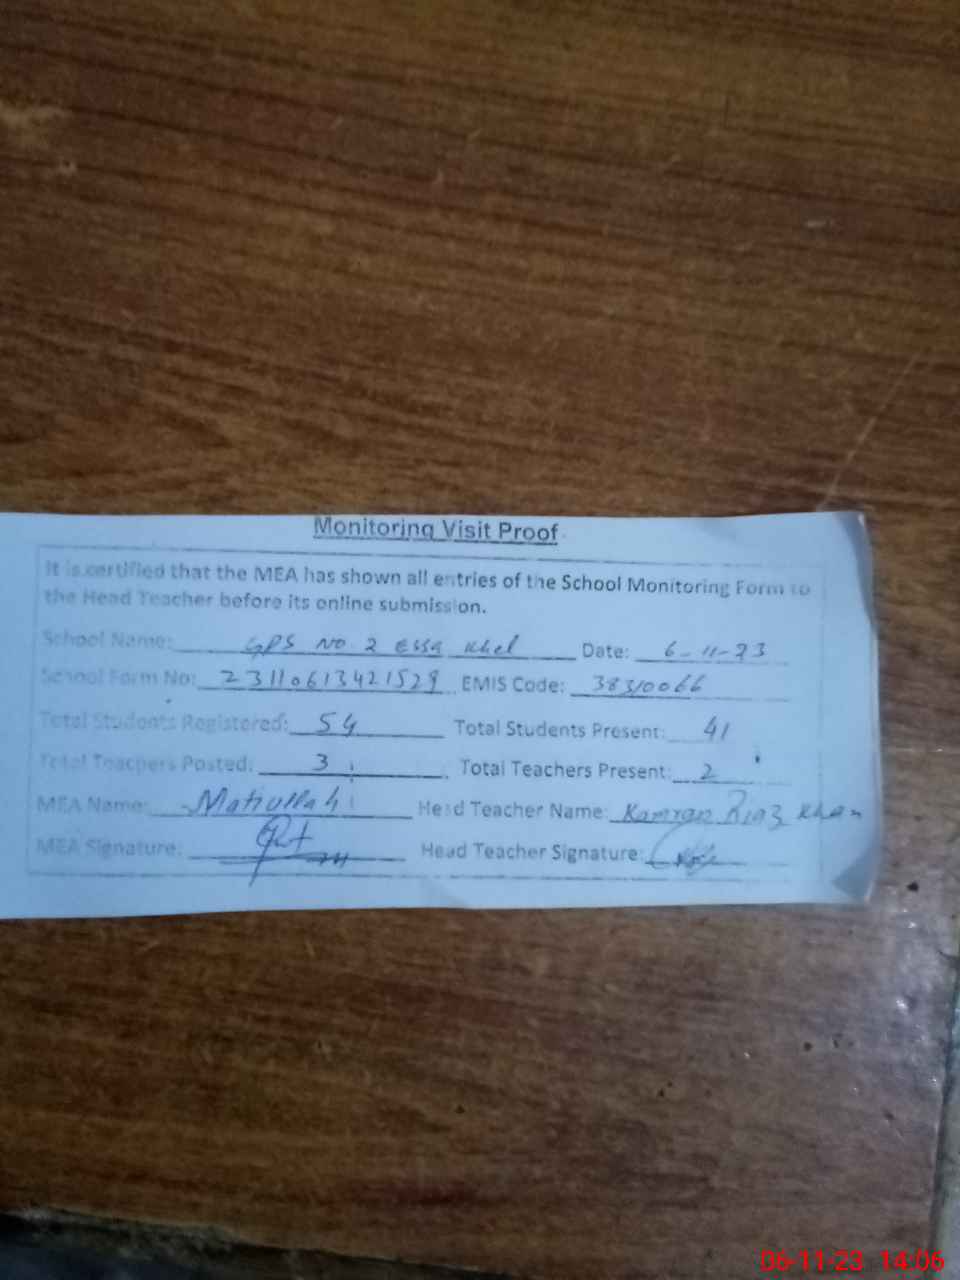 Monitoring Visit Proof
It is certified that the MEA has shown all entries of the School Monitoring Form to
the Head Teacher before its online submission.
School Name: GPS No. 2 Essa Khel Date: 6-11-23
School Form No: 23110613421529 EMIS Code: 38310066
Total Students Registered: 54 Total Students Present: 41
Total Teachers Posted: 3 Total Teachers Present: 2
MEA Name: Matiullah Head Teacher Name: Kamran Riaz Khan
MEA Signature: Head Teacher Signature:
06-11-23 14:06